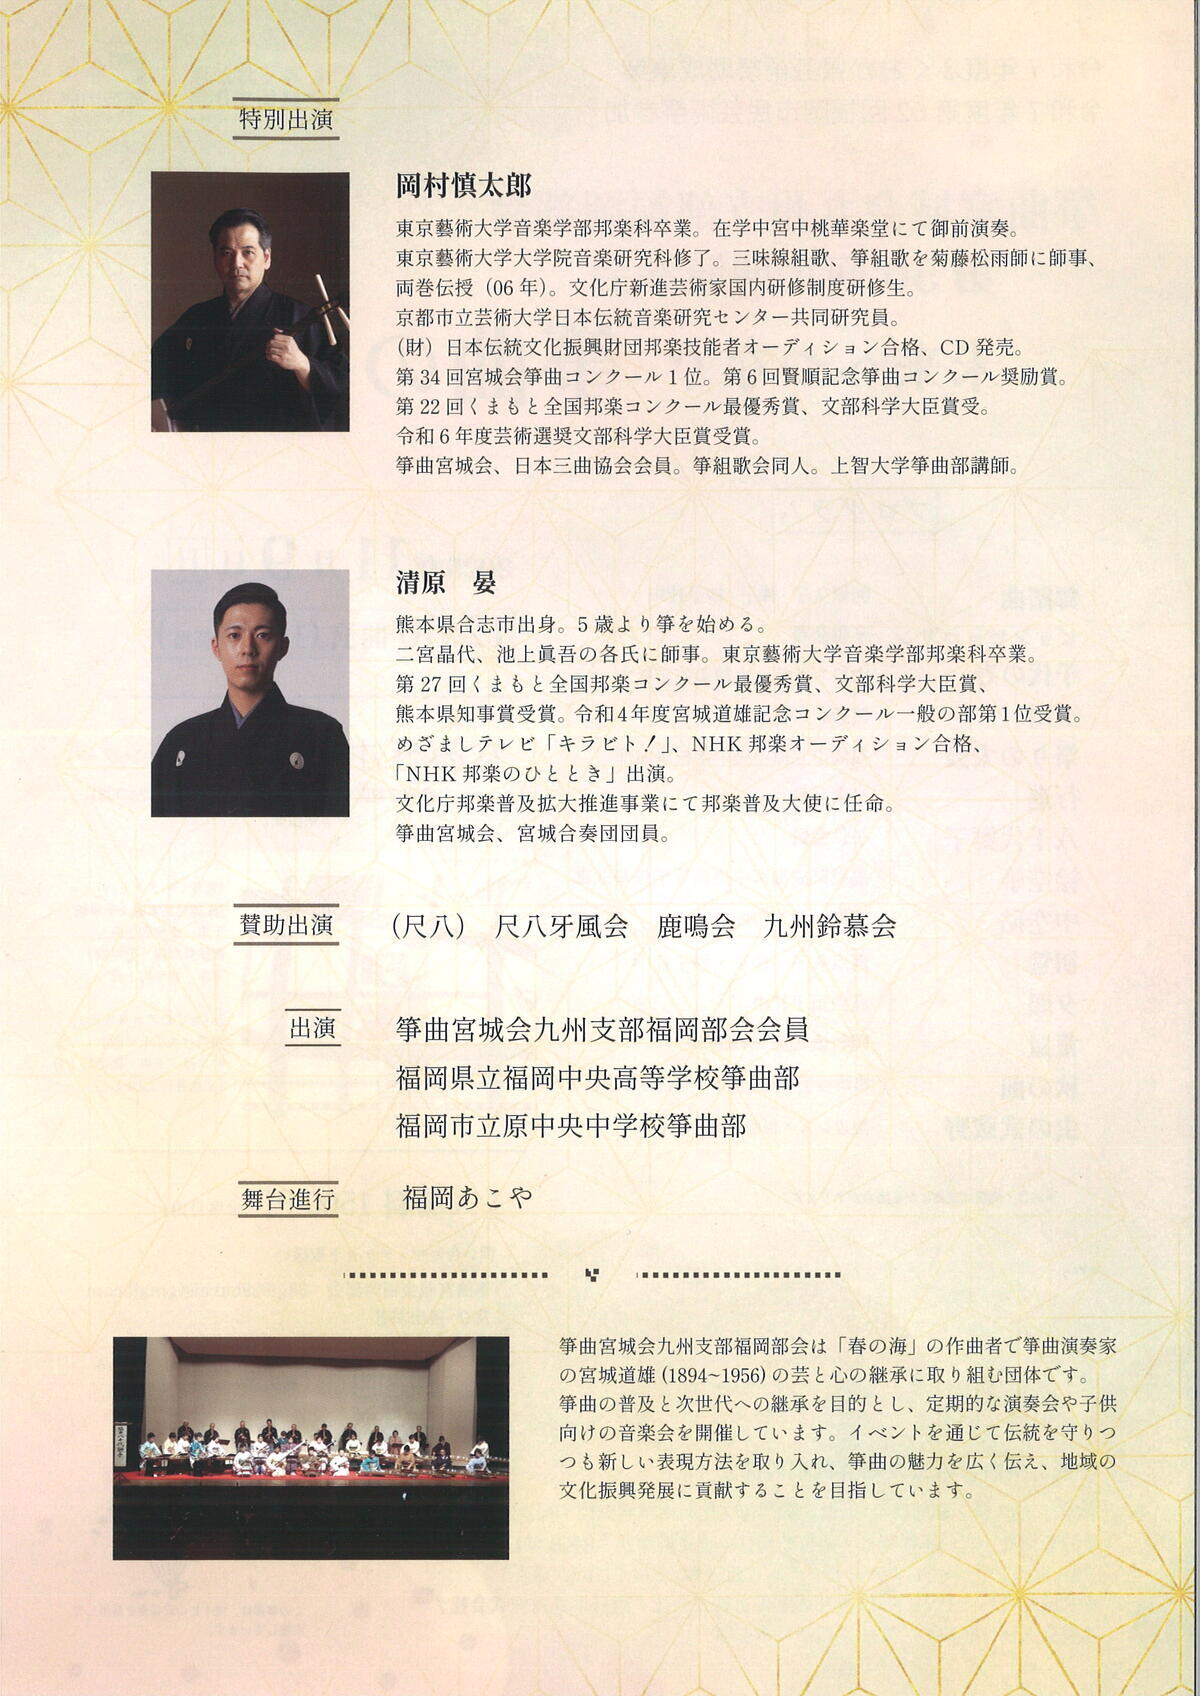 特別出演
岡村慎太郎
東京藝術大学音楽学部邦楽科卒業。在学中宮中桃華楽堂にて御前演奏。
東京藝術大学大学院音楽研究科修了。三味線組歌、箏組歌を菊藤松雨師に師事、
両巻伝授（06 年）。文化庁新進芸術家国内研修制度研修生。
京都市立芸術大学日本伝統音楽研究センター共同研究員。
（財）日本伝統文化振興財団邦楽技能者オーディション合格、CD 発売。
第 34 回宮城会箏曲コンクール 1 位。第 6 回賢順記念箏曲コンクール奨励賞。
第 22 回くまもと全国邦楽コンクール最優秀賞、文部科学大臣賞受。
令和 6 年度芸術選奨文部科学大臣賞受賞。
箏曲宮城会、日本三曲協会会員。箏組歌会同人。上智大学箏曲部講師。
清原　晏
熊本県合志市出身。5 歳より箏を始める。
二宮晶代、池上眞吾の各氏に師事。東京藝術大学音楽学部邦楽科卒業。
第 27 回くまもと全国邦楽コンクール最優秀賞、文部科学大臣賞、
熊本県知事賞受賞。令和4年度宮城道雄記念コンクール一般の部第1位受賞。
めざましテレビ「キラビト！」、NHK 邦楽オーディション合格、
「NHK 邦楽のひととき」出演。
文化庁邦楽普及拡大推進事業にて邦楽普及大使に任命。
箏曲宮城会、宮城合奏団団員。
賛助出演　（尺八）　尺八牙風会　鹿鳴会　九州鈴慕会
出演　箏曲宮城会九州支部福岡部会会員
福岡県立福岡中央高等学校箏曲部
福岡市立原中央中学校箏曲部
舞台進行　福岡あこや
箏曲宮城会九州支部福岡部会は「春の海」の作曲者で箏曲演奏家
の宮城道雄 (1894~1956) の芸と心の継承に取り組む団体です。
箏曲の普及と次世代への継承を目的とし、定期的な演奏会や子供
向けの音楽会を開催しています。イベントを通じて伝統を守りつ
つも新しい表現方法を取り入れ、箏曲の魅力を広く伝え、地域の
文化振興発展に貢献することを目指しています。